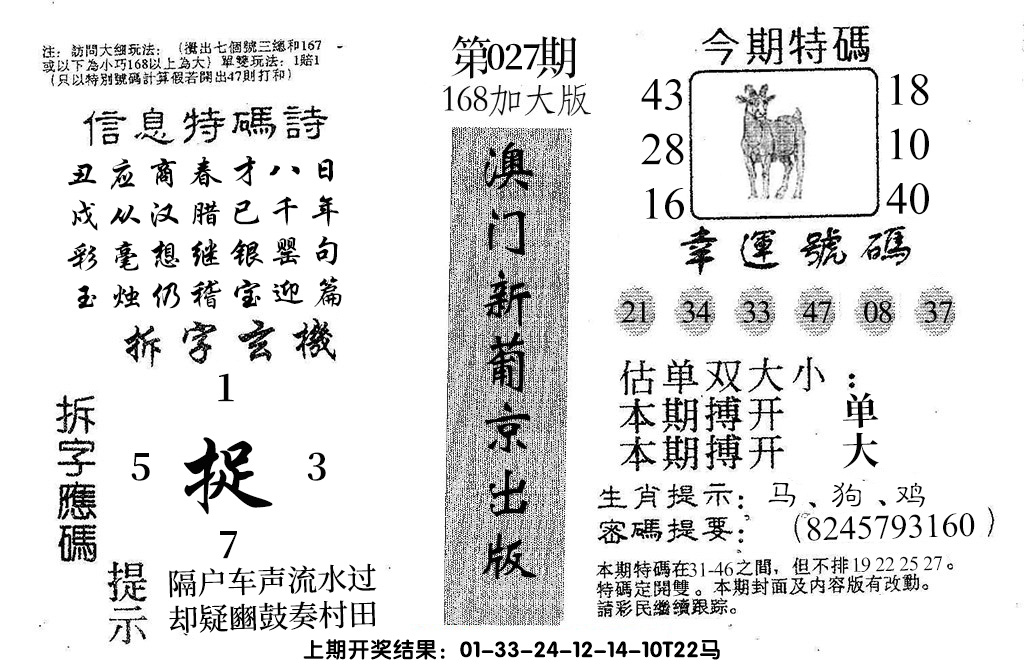 注：訪問大細玩法：（攪出七個號三總和167
或以下為小巧168以上為大）單雙玩法：1賠1
（只以特別號碼計算假若開出47則打和）
信息特碼詩
丑应商春才八日
戍从汉腊已千年
彩毫想继银罂句
玉烛仍稽宝迎篇
拆字玄機
1
5 捉 3
7
拆字應碼
提示
隔户车声流水过
却疑豳鼓奏村田
第027期
168加大版
澳门新葡京出版
今期特碼
43 18
28 10
16 40
幸運號碼
21 34 33 47 08 37
估单双大小：
本期搏开 单
本期搏开 大
生肖提示：马、狗、鸡
密碼提要：（8245793160）
本期特碼在31-46之間，但不排19 22 25 27。
特碼定開雙。本期封面及内容版有改動。
請彩民繼續跟踪。
上期开奖结果：01-33-24-12-14-10T22马